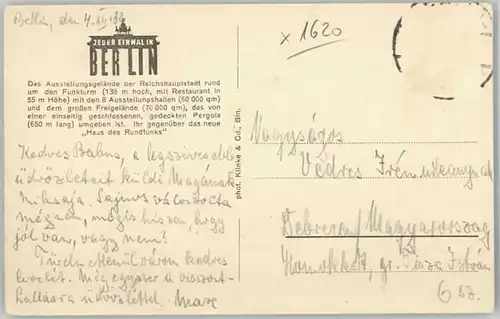 Berlin, den 4. XII. 
x 1620
JEDER EINMAL IN
BERLIN
Das Ausstellungsgelände der Reichshauptstadt rund
um den Funkturm (138 m hoch, mit Restaurant in
55 m Höhe) mit den 8 Ausstellungshallen (60 000 qm)
und dem großen Freigelände (70 000 qm), das von
einer einseitig geschlossenen, gedeckten Pergola
(680 m lang) umgeben ist. Ihr gegenüber das neue
„Haus des Rundfunks“
phot. Klinke & Co., Bln.
Kedves Babus, a legszivesebb
üdvözleteit küldi Magának
Miksája. Sajnos
mégsem, mégis hiszem, hogy
jól van, vagy nem?
Türelmetlenül várom kedves
levelét. Még egyszer a viszont-
hallásra üdvözlettel Maxe
Nagyságos
Vedres Irén
Debrecen, Magyarország
Homokkert, gr. Tisza István
6 sz.